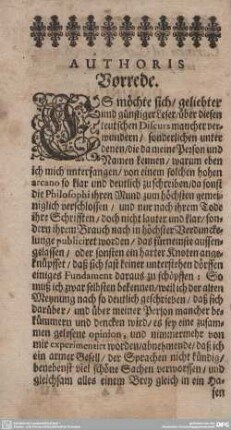 AUTHORIS
Vorrede.
ES möchte sich/ geliebter
und günstiger Leser/ über diesen
teutschen Discurs mancher ver-
wundern/ sonderlichen unter
denen/ die da meine Person und
Namen kennen/ warum eben
ich mich unterfangen/ von einem solchen hohen
arcano so klar und deutlich zu schreiben/ da sonst
die Philosophi ihren Mund zum höchsten gemei-
niglich verschlossen / und nur nach ihrem Tode
ihre Schrifften / doch nicht lauter und klar/ son-
dern ihrem Brauch nach in höchster Verduncke-
lunge publiciret worden / das fürnemste aussen-
gelassen/ oder sonsten ein harter Knoten ange-
knüpffet / daß sich fast keiner unterstehen dörffen
einiges Fundament daraus zu schöpffen: So
muß ich zwar selbsten bekennen/ weil ich der alten
Meynung nach so deutlich geschrieben / daß sich
darüber/ und über meiner Person mancher be-
kümmern und dencken wird/ es sey eine zusam-
men gelesene opinion, und nimmermehr von
mir experimentirt worden/ abnehmende/ daß ich
ein armer Gesell/ der Sprachen nicht kündig/
benebenst viel schöne Sachen verworffen/ und
gleichsam alles einem Brey gleich in ein Ha-
fen